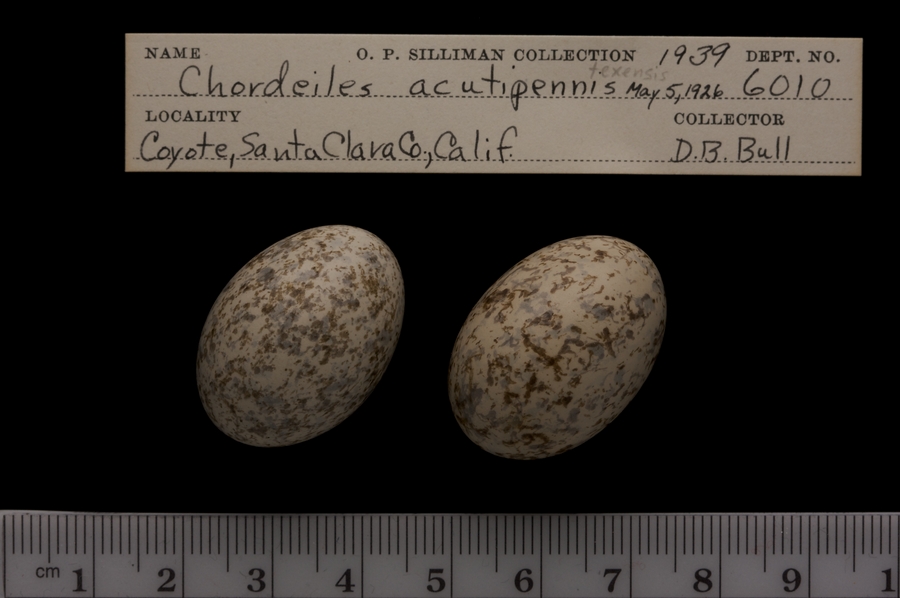 NAME O. P. SILLIMAN COLLECTION 1939 DEPT. NO.
texensis
Chordeiles acutipennis May 5, 1926 6010
LOCALITY COLLECTOR
Coyote, Santa Clara Co., Calif. D.B. Bull
cm 1 2 3 4 5 6 7 8 9 1